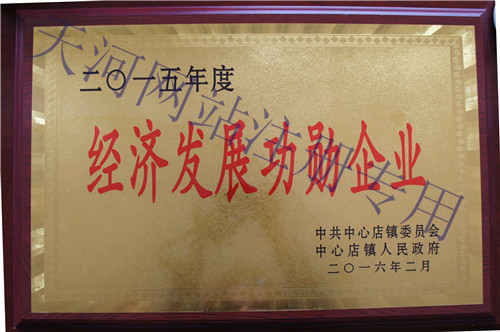 二〇一五年度
经济发展功勋企业
中共中心店镇委员会
中心店镇人民政府
二〇一六年二月
天河网站注册专用